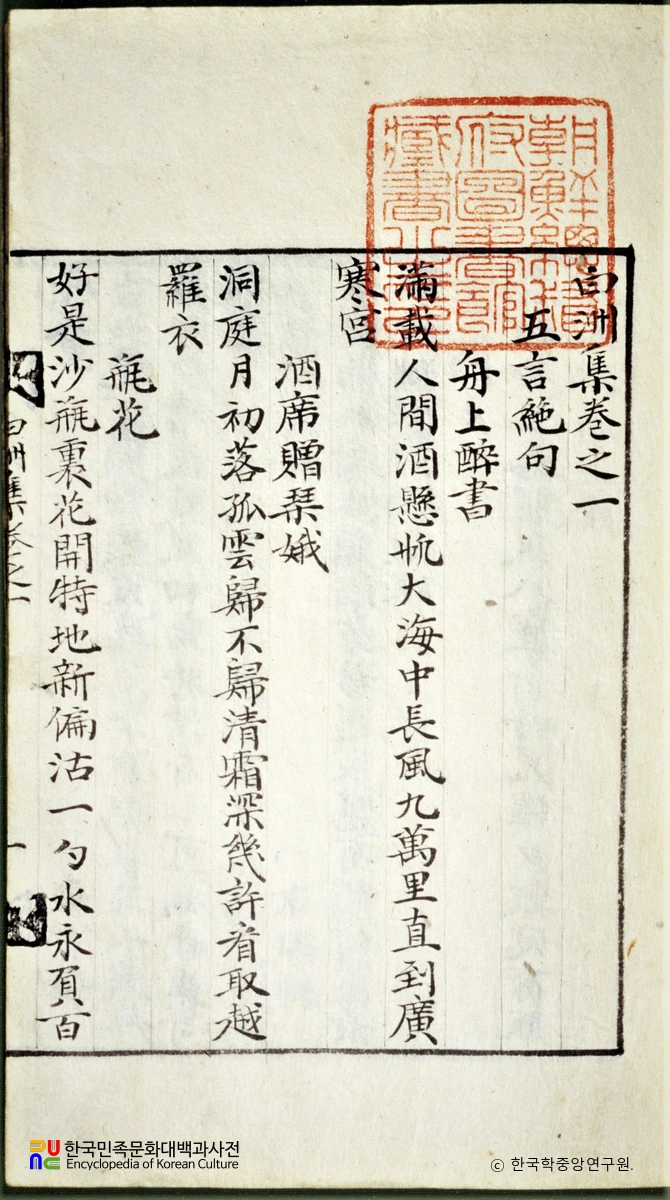 朝鮮總督
府圖書館
藏書之印
白洲集卷之一
五言絶句
舟上醉書
滿載人間酒懸帆大海中長風九萬里直到廣
寒宮
酒席贈琴娥
洞庭月初落孤雲歸不歸清霜深幾許看取越
羅衣
甁花
好是沙甁裏花開特地新偏沽一勺水永負百
白洲集卷之一
一
한국민족문화대백과사전
Encyclopedia of Korean Culture
ⓒ 한국학중앙연구원.